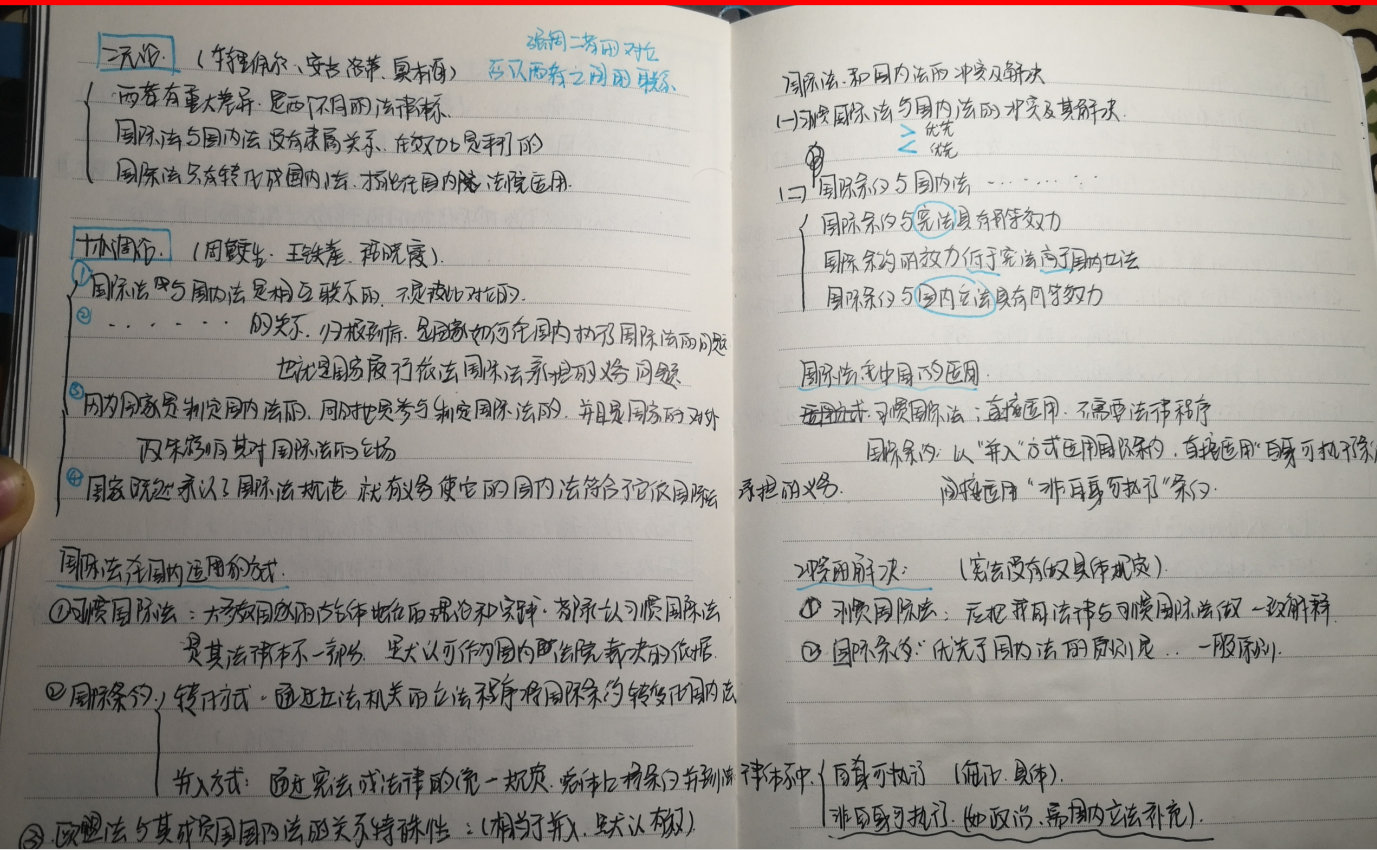 二元论. (特里佩尔、安吉洛蒂、奥本海)
强调二者的对立
否认两者之间的联系
两者有重大差异. 是两个不同的法律体系.
国际法与国内法没有隶属关系. 在效力上是平行的
国际法只有转化成国内法. 才能在国内法院适用.
协调论. (周鲠生. 王铁崖. 程晓霞).
① 国际法与国内法是相互联系的. 不是彼此对立的.
② ······· 的关系. 归根到底. 是国家如何在国内执行国际法的问题
也就是国家履行依法国际法承担的义务问题
③ 因为国家是制定国内法的. 同时也是参与制定国际法的. 并且是国家的对外
政策影响其对国际法的立场
④ 国家既然承认了国际法规范 就有义务使它的国内法符合于它依国际法承担的义务.
国际法在国内适用的方式.
①习惯国际法: 大多数国家的 理论和实践. 都承认习惯国际法
是其法律体系一部分. 默认可作为国内法院裁决的依据.
②国际条约: 转化方式. 通过立法机关的立法程序将国际条约转变化国内法
并入方式: 通过宪法或法律的统一规定. 整体上将条约并到法律体系中.
自身可执行 (具体).
非自身可执行. (如政治、需国内立法补充).
③.欧盟法与其成员国国内法的关系特殊性: (相当于并入. 默认有权).
国际法和国内法的冲突及解决
(一)习惯国际法与国内法的冲突及其解决.
> 优先
< 优先
(二) 国际条约与国内法 ·········
国际条约与宪法具有同等效力
国际条约的效力低于宪法高于国内立法
国际条约与国内立法具有同等效力
国际法在中国的适用.
适用方式. 习惯国际法: 直接适用. 不需要法律程序
国际条约: 以"并入"方式适用国际条约. 直接适用"自身可执行"条
间接适用"非自身可执行"条约.
冲突的解决: (宪法没有做具体规定).
① 习惯国际法: 应把我国法律与习惯国际法做一致解释.
② 国际条约: 优先于国内法的原则是.. 一般原则.